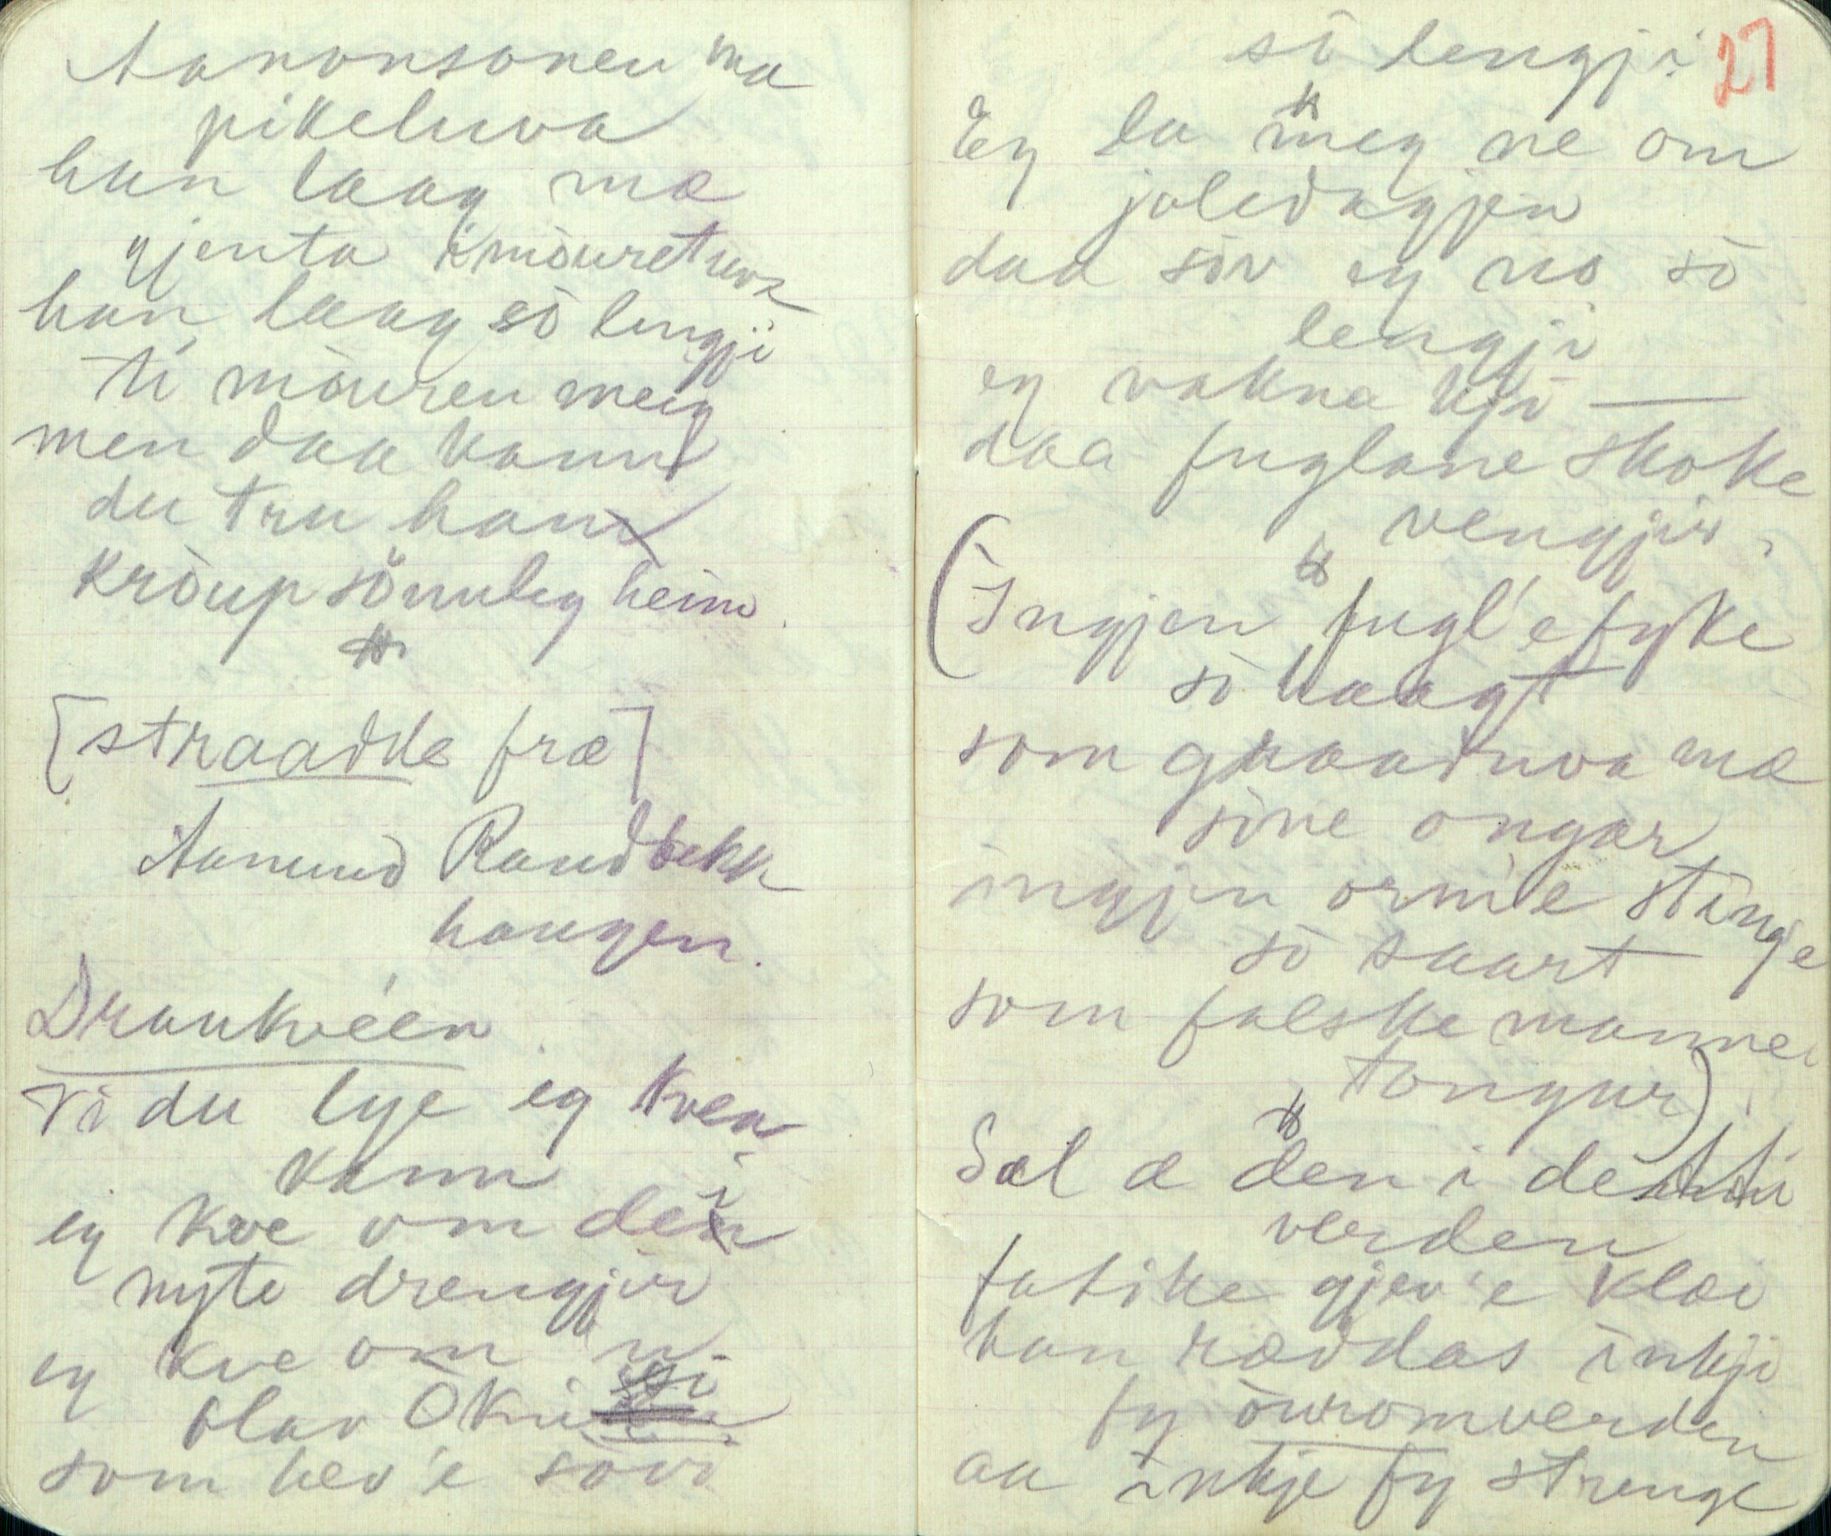 Aanonsonen mæ
pikeluva
han laag mæ
gjenta i mòuretuva
han laag sò lengji
ti mòuren meig
men daa kann
du tru han
kròup sönnuleg heim.
[straadde fræ]
Aanund Raudbekk
haugen.
Draukvéen
Vi du lye eg kvea
kann
eg kve om dei
nyte drengjir
eg kve om n
Olav Òkni
som hev'e sòvi
sò lengji
27
Eg la meg ne om
joledagjen
daa söv eg no sò
lengji
eg vakna kji —
daa fuglane skoke
vengjir.
(Ingjen fugl'e fyke
sò haagt
som graaduva mæ
sine ongar
ingjen orm'e stinge
sò saart
som falske manne
tongur)
Sæl æ den i de
verden
fatike gjev'e klæi
han ræddas inkji
fy òuromverden
aa inkje fy strenge